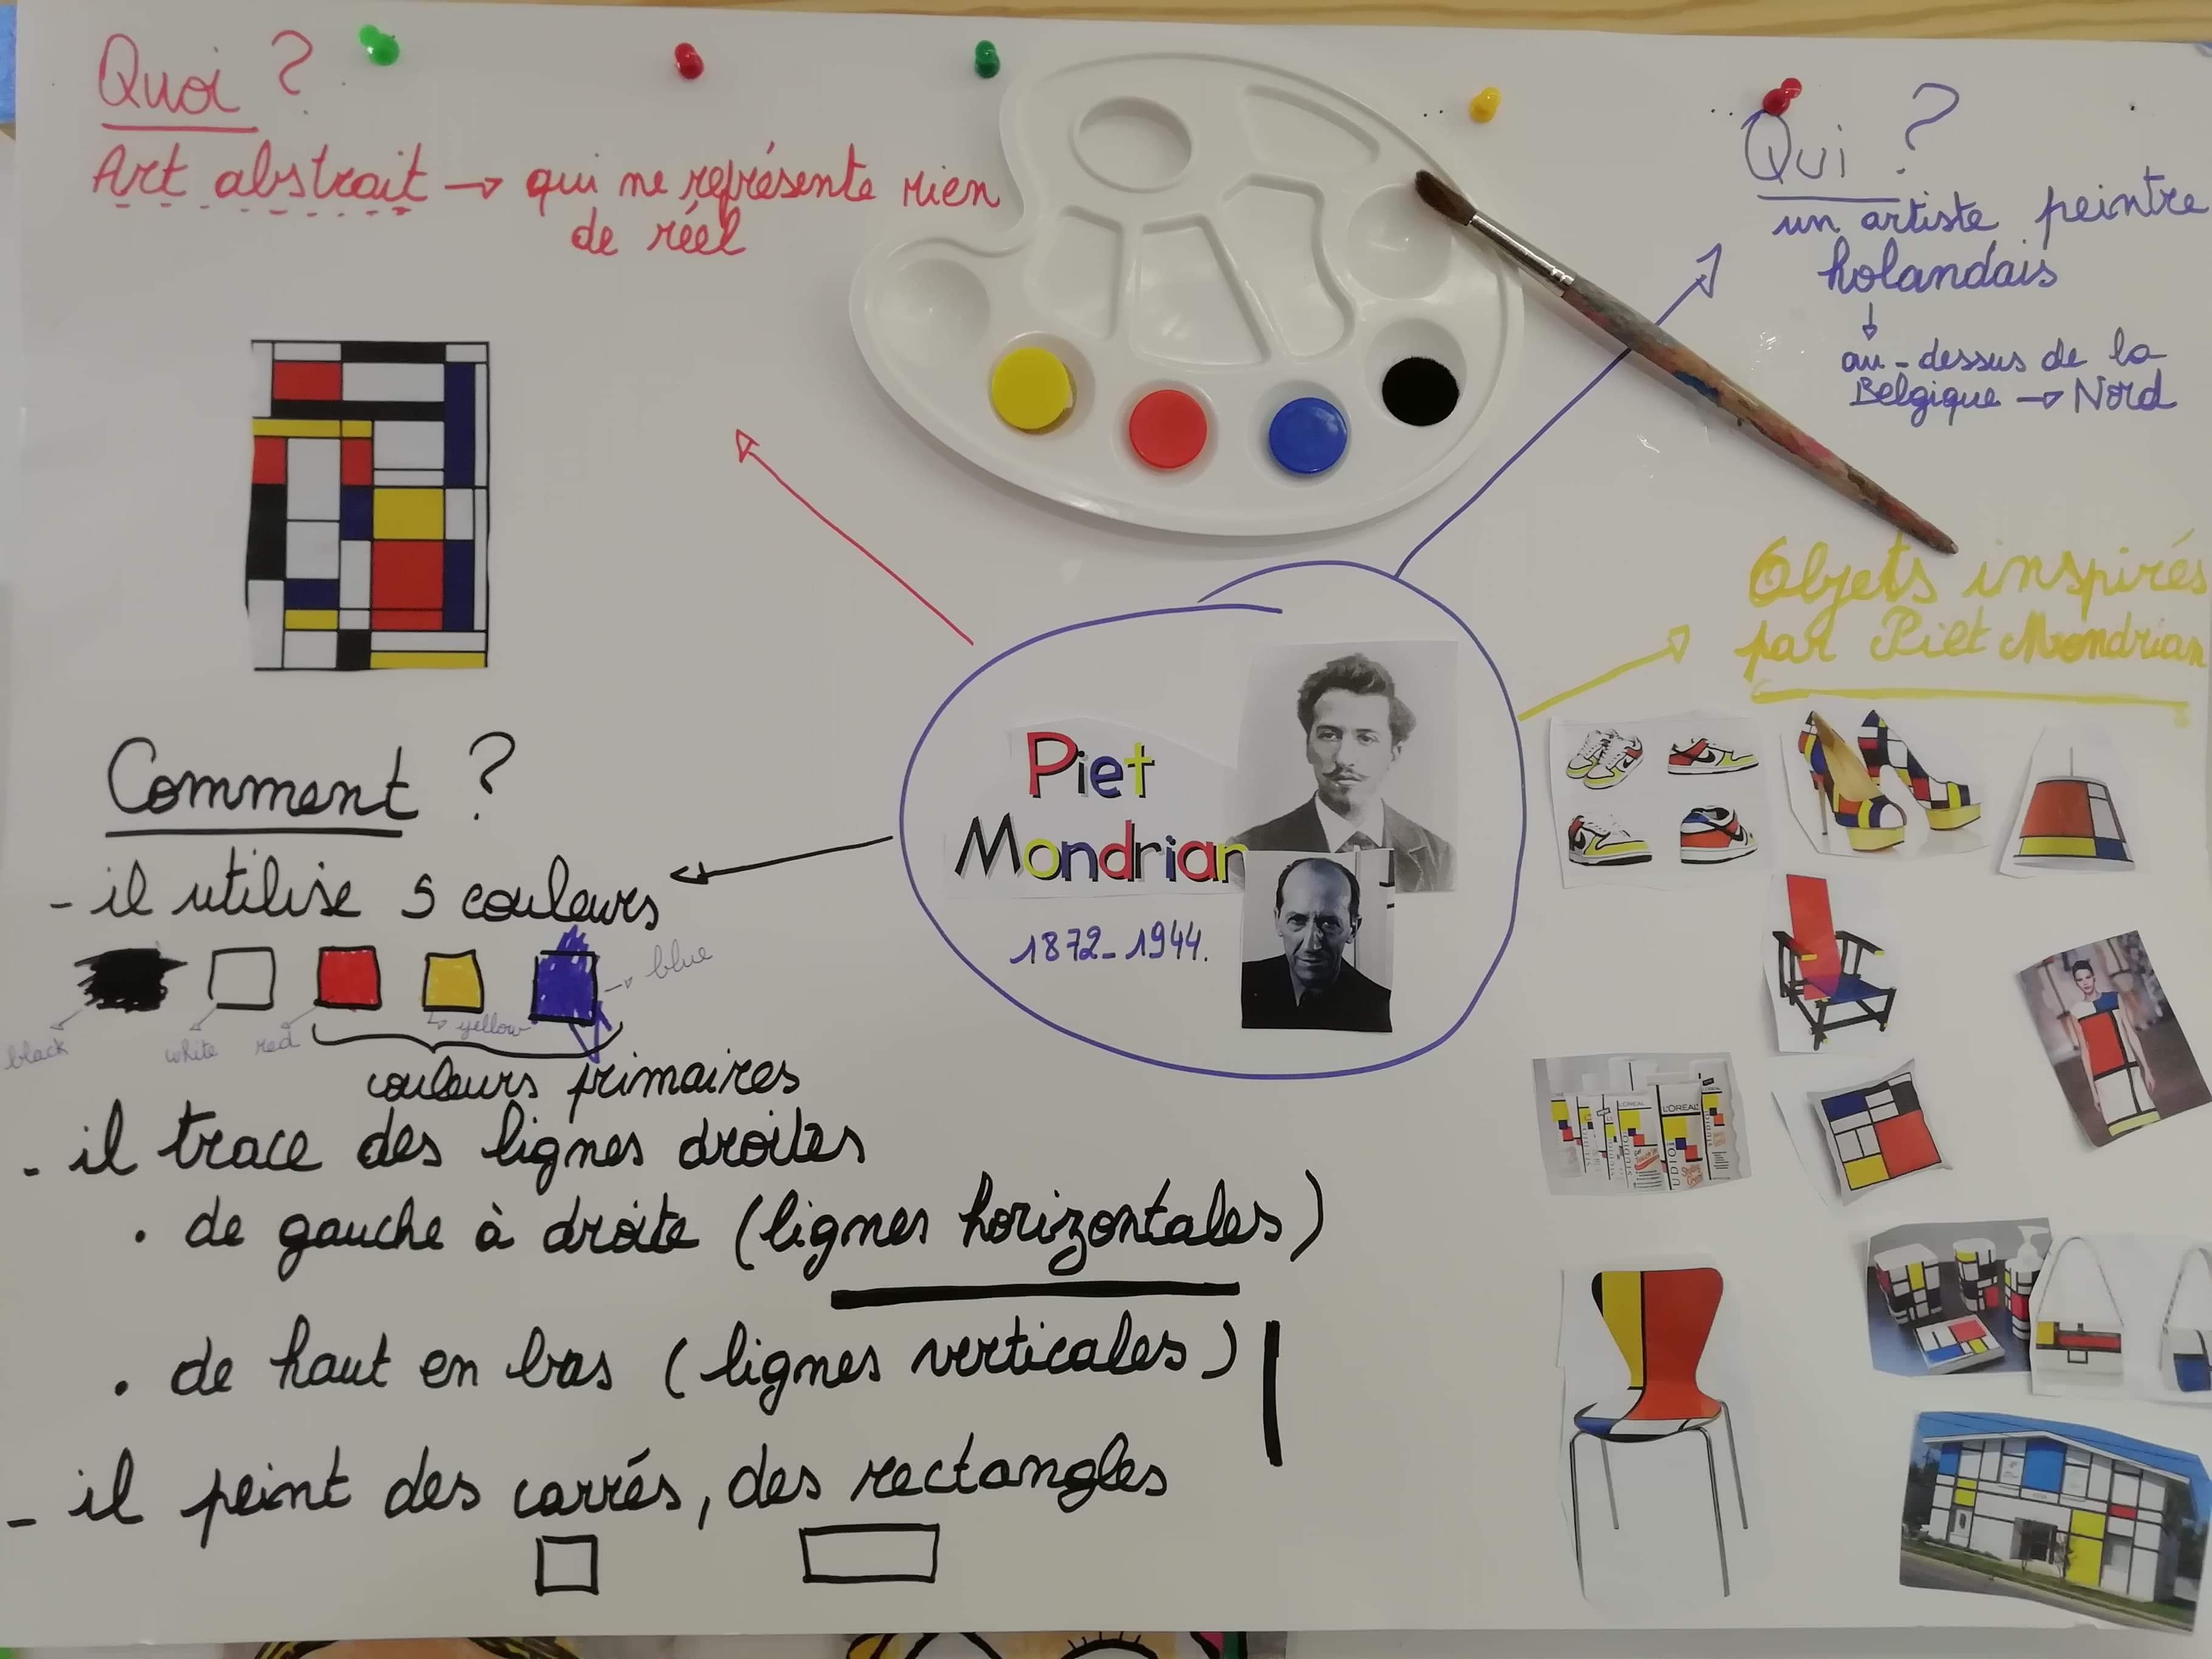 Quoi ?
Art abstrait → qui ne représente rien
de réel
Qui ?
un artiste peintre
holandais
↓
au-dessus de la
Belgique → Nord
Objets inspirés
par Piet Mondrian
Piet
Mondrian
1872-1944.
Comment ?
- il utilise 5 couleurs
→ blue
black
white
red
yellow
couleurs primaires
- il trace des lignes droites
• de gauche à droite (lignes horizontales)
• de haut en bas (lignes verticales)
- il peint des carrés, des rectangles
L'OREAL